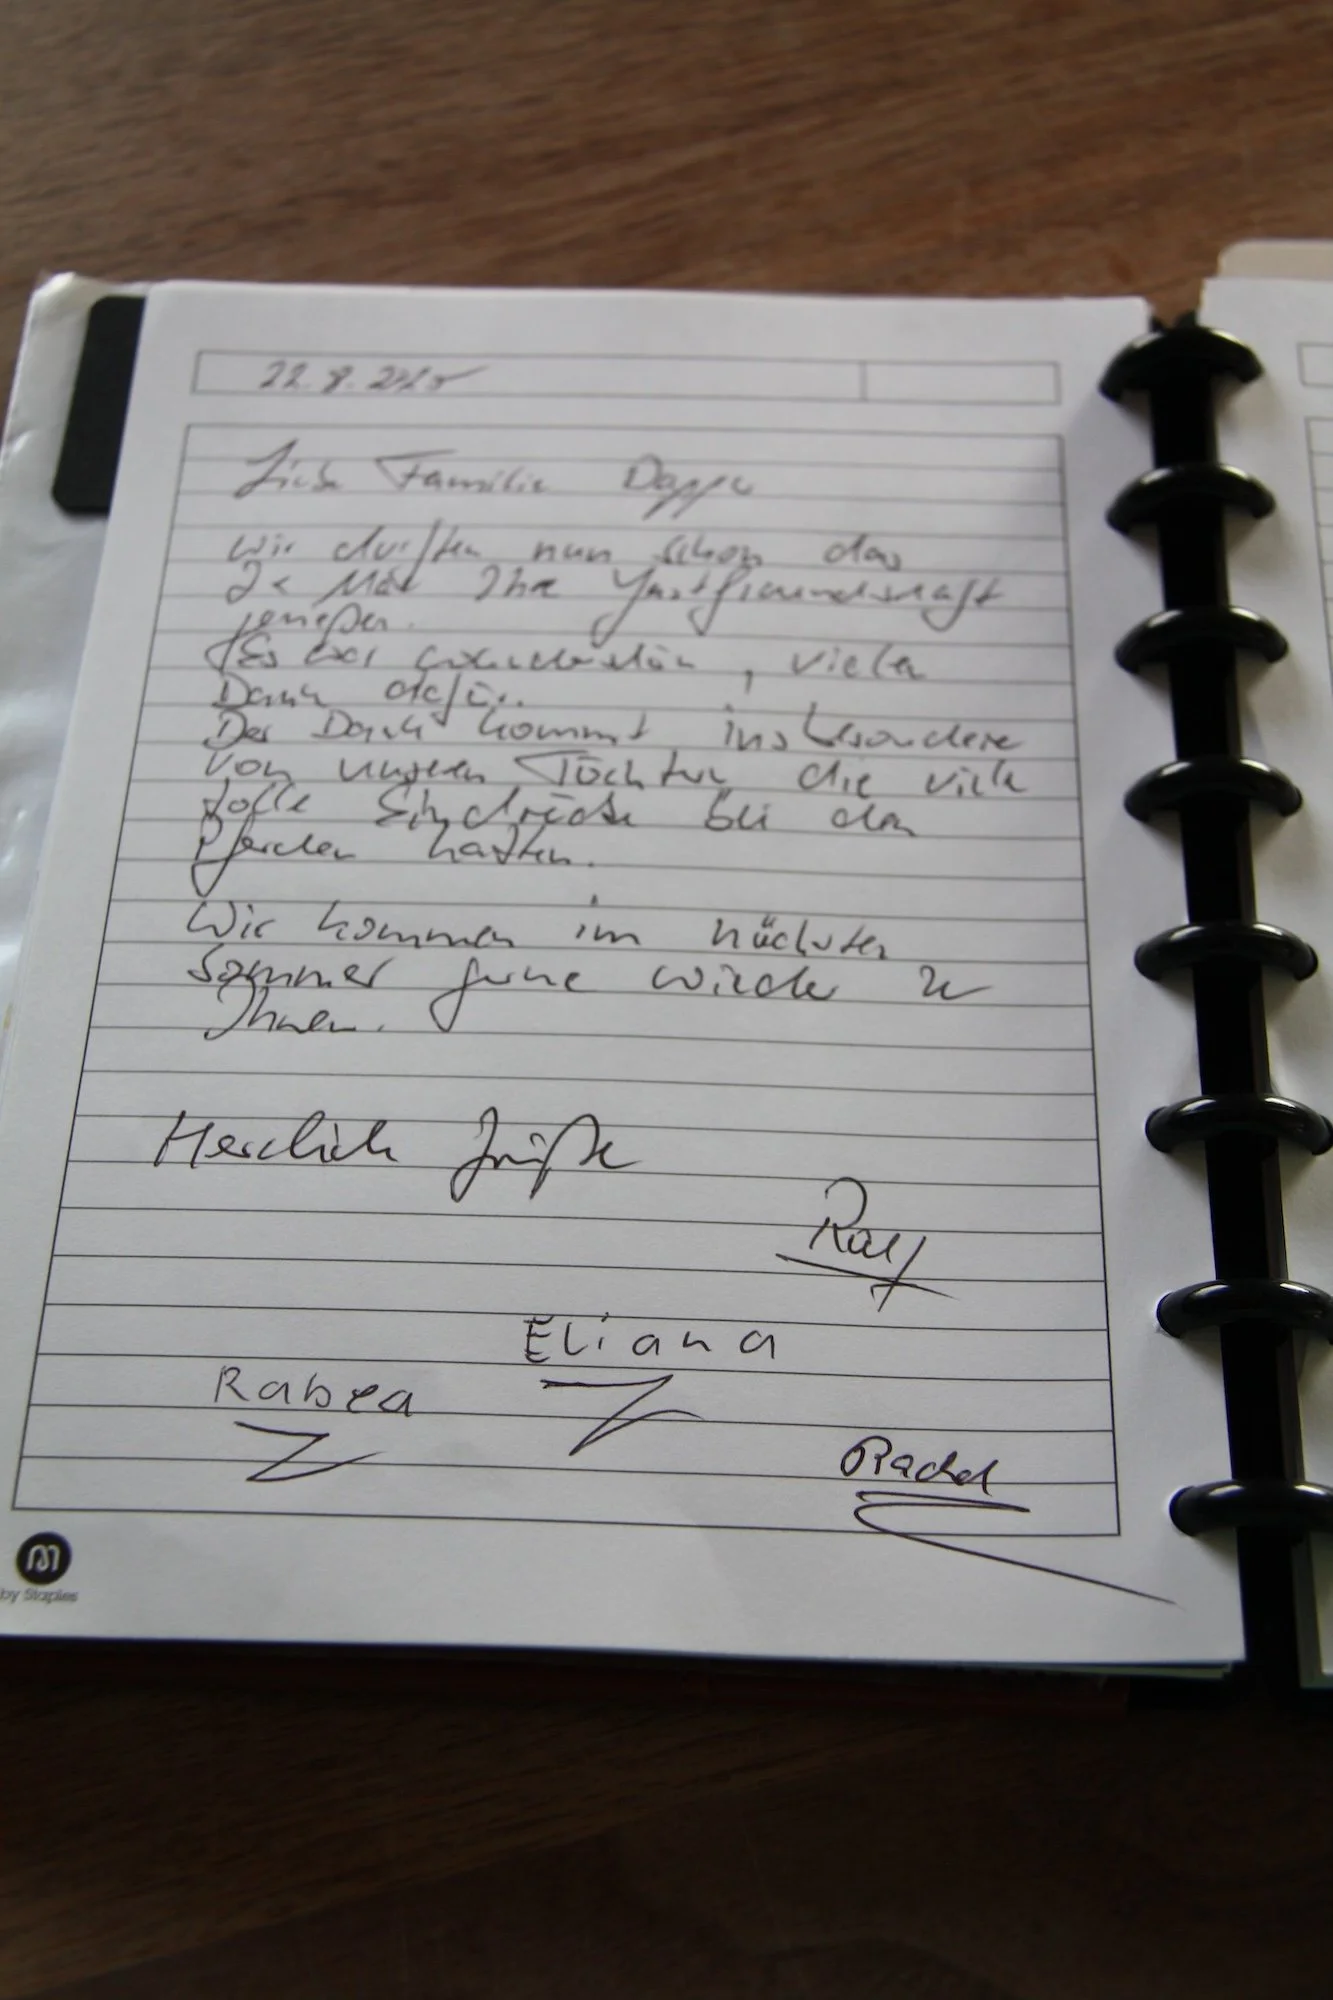 22.8.2015
Liebe Familie Dappe
wir durften nun schon das
2x Mal Ihre Gastfreundschaft
genießen.
Es war wunderschön, vielen
Dank dafür.
Der Dank kommt insbesondere
von unseren Töchtern die viele
tolle Eindrücke bei den
Pferden hatten.
Wir kommen im nächsten
Sommer gerne wieder zu
Ihnen.
Herzlich Grüße
Ralf
Eliana
Rabea
Rachel
by Staples